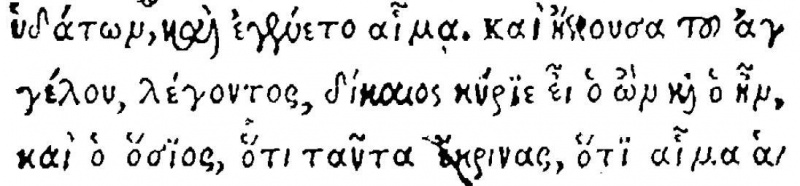 ὑδάτων, καὶ ἐγένετο αἷμα. καὶ ἤκουσα τοῦ ἀγ
γέλου, λέγοντος, δίκαιος κύριε εἶ ὁ ὢν καὶ ὁ ἦν,
καὶ ὁ ὅσϊος, ὅτι ταῦτα ἔκρινας, ὅτϊ αἷμα ἁ